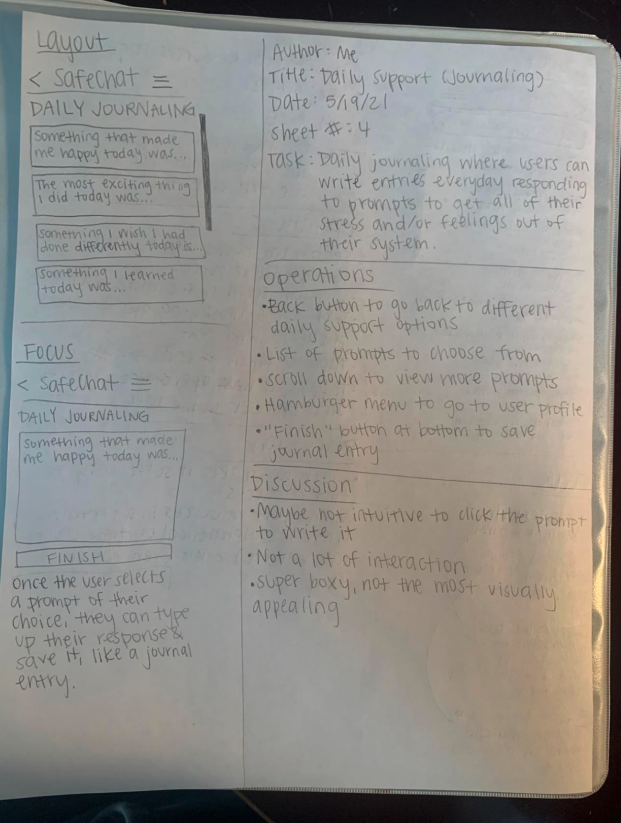 Layout
< SafeChat ≡
DAILY JOURNALING
Something that made
me happy today was...
The most exciting thing
I did today was...
Something I wish I had
done differently today is...
Something I learned
today was...
FOCUS
< SafeChat ≡
DAILY JOURNALING
Something that made
me happy today was...
FINISH
Once the user selects
a prompt of their
choice, they can type
up their response &
save it, like a journal
entry.
Author: Me
Title: Daily Support (Journaling)
Date: 5/19/21
Sheet #: 4
Task: Daily journaling where users can
write entries everyday responding
to prompts to get all of their
stress and/or feelings out of
their system.
Operations
•Back button to go back to different
daily support options
•List of prompts to choose from
•Scroll down to view more prompts
•Hamburger menu to go to user profile
•"Finish" button at bottom to save
journal entry
Discussion
•Maybe not intuitive to click the prompt
to write it
•Not a lot of interaction
•Super boxy, not the most visually
appealing